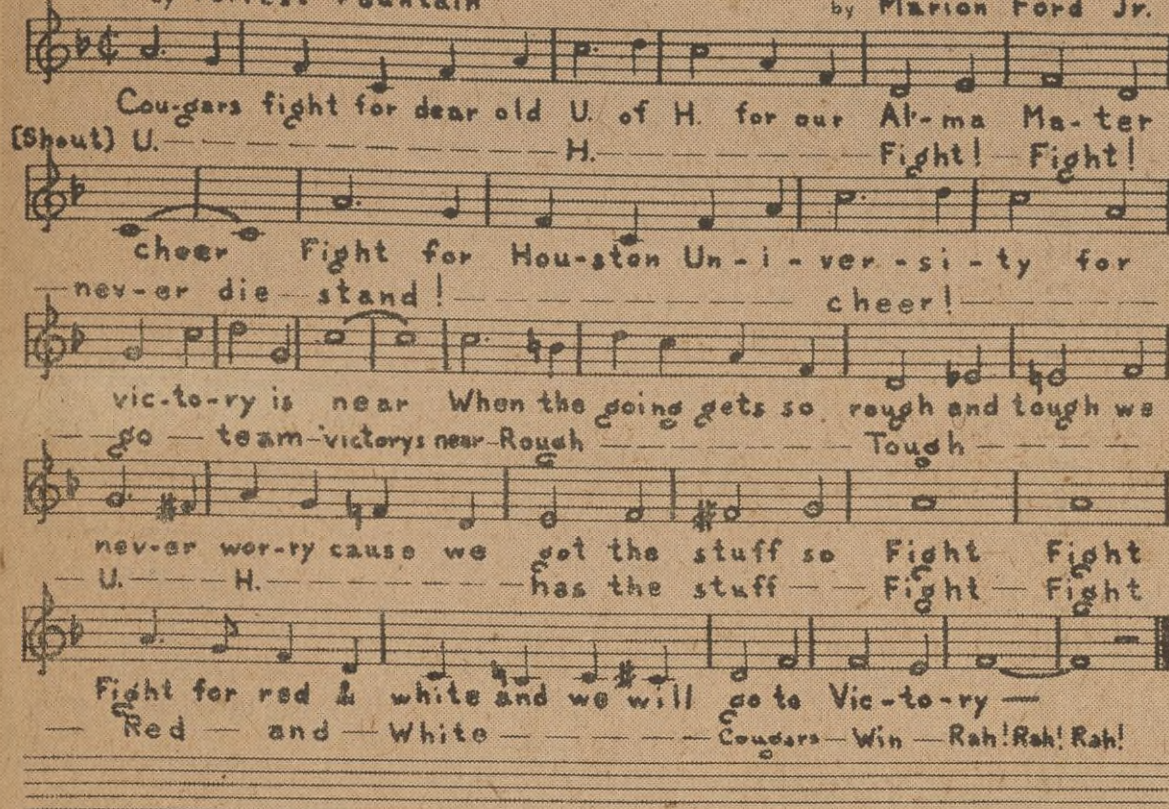 by Forrest Fountain by Marion Ford Jr.
Cou-gars fight for dear old U. of H. for our Al-ma Ma-ter
(Shout) U. H. Fight! Fight!
cheer Fight for Hou-ston Un-i-ver-si-ty for
nev-er die stand! cheer!
vic-to-ry is near When the going gets so rough and tough we
go team-victorys near-Rough Tough
nev-er wor-ry cause we got the stuff so Fight Fight
U. H. has the stuff Fight Fight
Fight for red & white and we will go to Vic-to-ry
Red and White Cougars Win Rah! Rah! Rah!